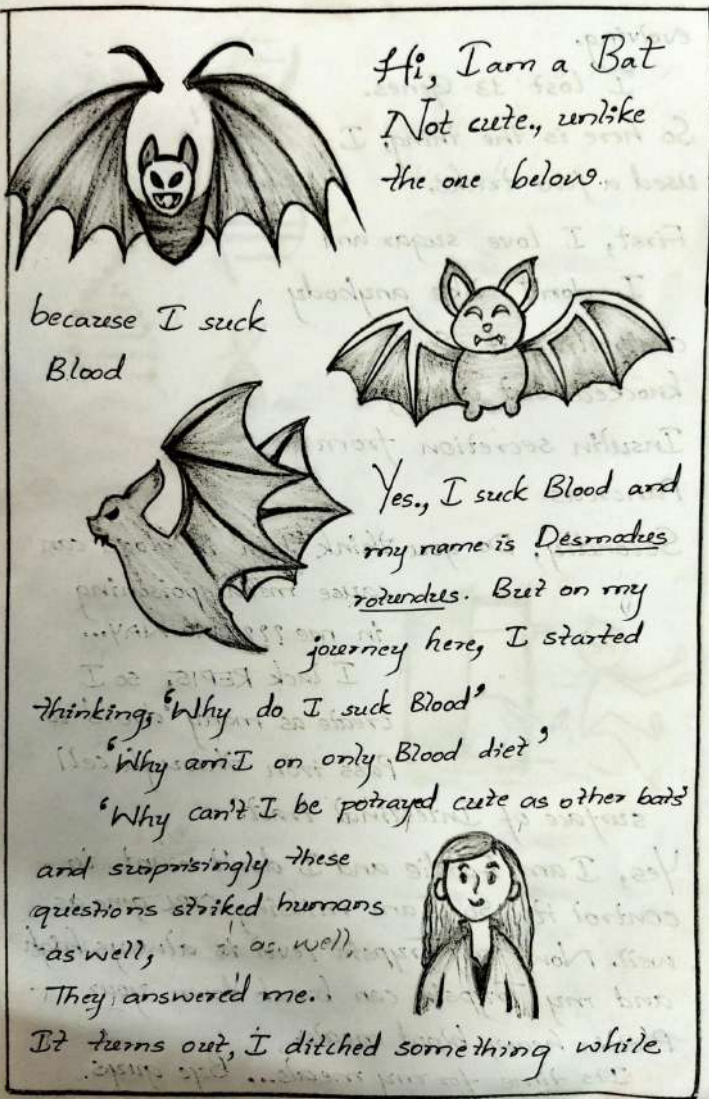 Hi, I am a Bat
Not cute., unlike
the one below.
because I suck
Blood
Yes., I suck Blood and
my name is Desmodus
rotundus. But on my
journey here, I started
thinking, 'Why do I suck Blood'
'Why am I on only Blood diet'
'Why can't I be potrayed cute as other bats'
and surprisingly these
questions striked humans
as well, as well
They answered me.
It turns out, I ditched something while